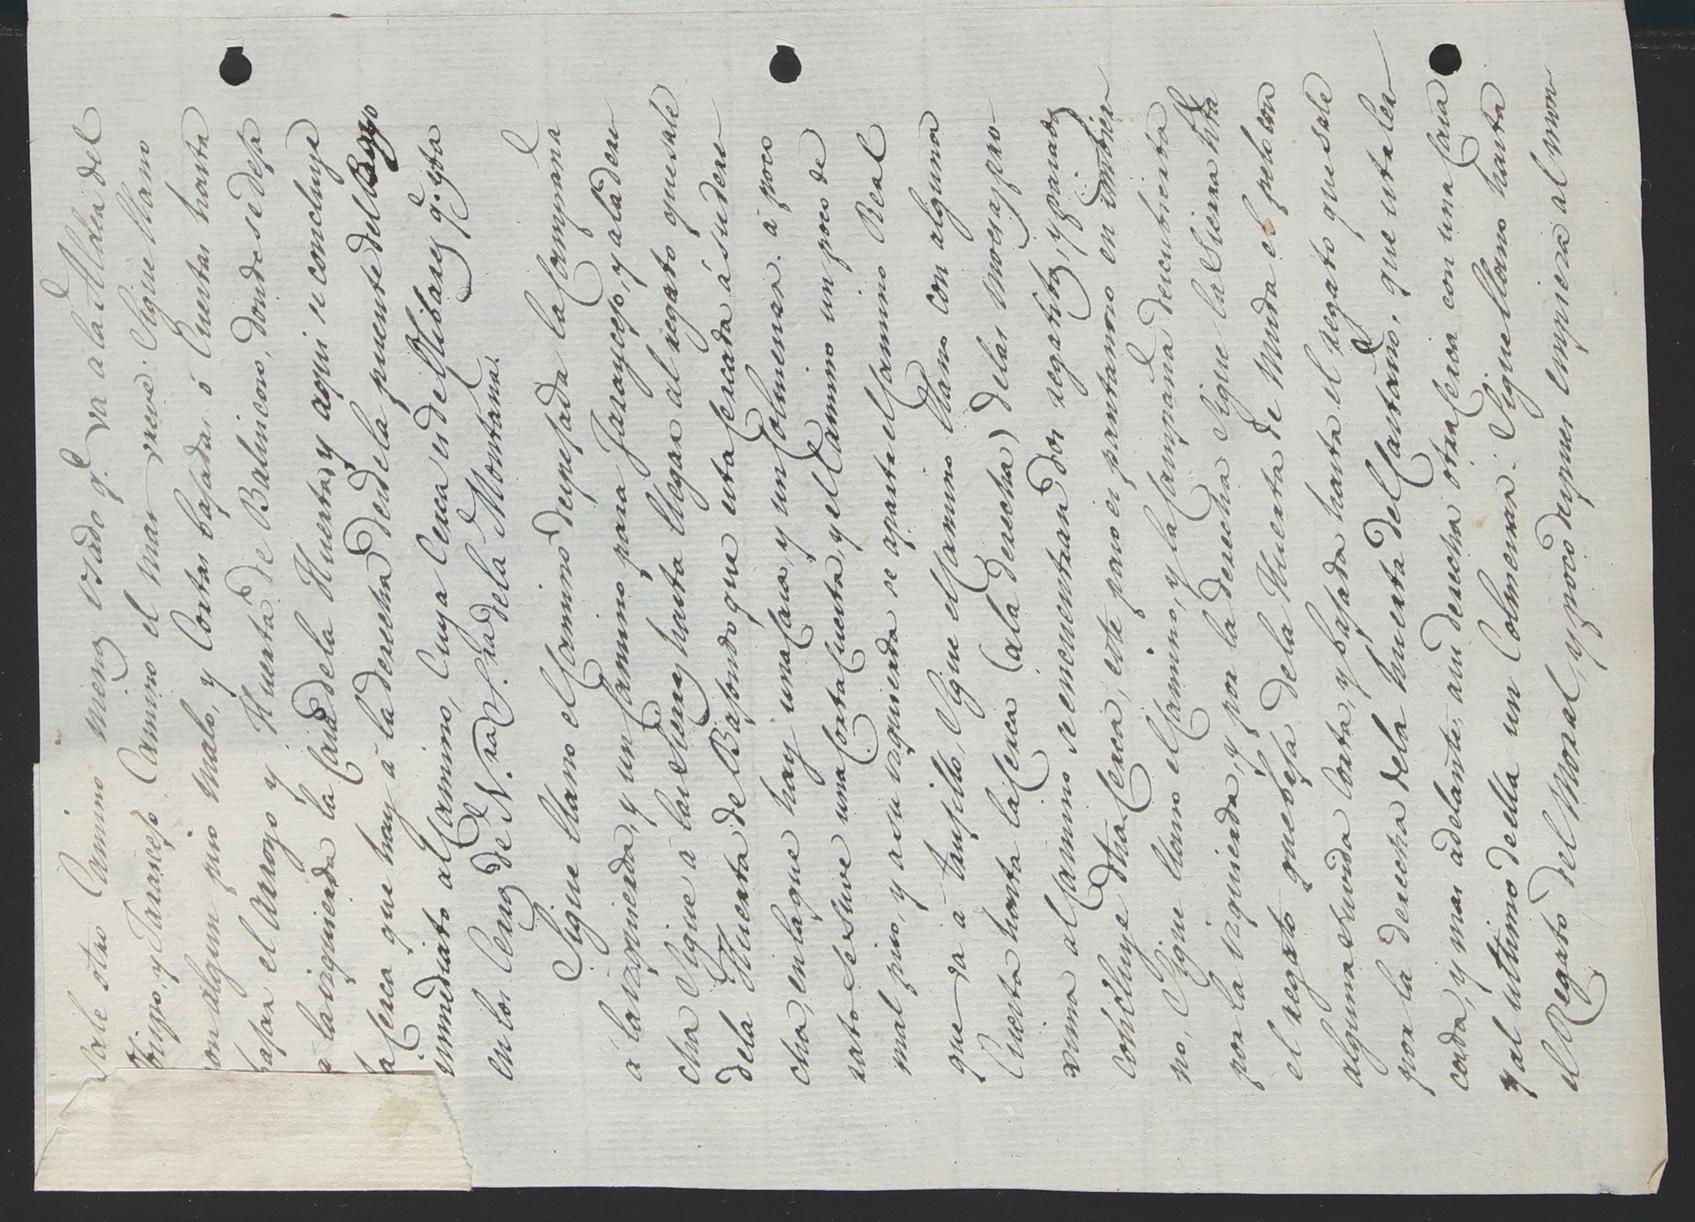 Sale otro Camino menos usado q.e va a la Aldea del
Obispo, y Taracejo. Camino el mas nuevo. Sigue llano
con algun piso malo, y Cortas bajadas ó Cuestas hasta
pasar el Arroyo y Huerta de Balincoso, donde se deja
a la izquierda la Casa de la Huerta, y aqui se concluye
la Cerca que hay á la derecha desde la puente del
inmediato al Camino, Cuya Cerca es de Olibares q.e esta
en los Cerros de N.ra S.ra de la Montaña.
Sigue llano el Camino despejada la Campaña
a la izquierda, y un Camino para Jaraycejo, y a la dere
cha Sigue a las Sierras hasta llegar al regato que sale
de la Huerta de Bajondo que esta cercada á su dere
cha, en la que hay una Casa, y un Colmenar. á poco
rato se sube una Corta Cuesta, y el Camino un poco de
mal piso, y a su izquierda se aparta el Camino Real
que va á Trujillo, Sigue el Camino llano con alguna
Cuesta hasta la Cerca (a la derecha) de las Moreras pro-
xima al Camino se encuentran dos regatitos, y pasados
concluye dha Cerca, este paso es pantanoso en Imbier
no, Sigue llano el Camino, y la Campaña descubierta
por la izquierda, y por la derecha Sigue la Sierra hta
el regato que baja de la Huerta de Monda el pelo con
alguna subida corta, y bajada hasta el regato que sale
por la derecha de la huerta del Castaño, que esta cer
cada, y mas adelante, aun derecha otra Cerca con una Casa
y al ultimo de ella un Colmenar. Sigue llano hasta
el Regato del Moral, y poco despues empieza al mon